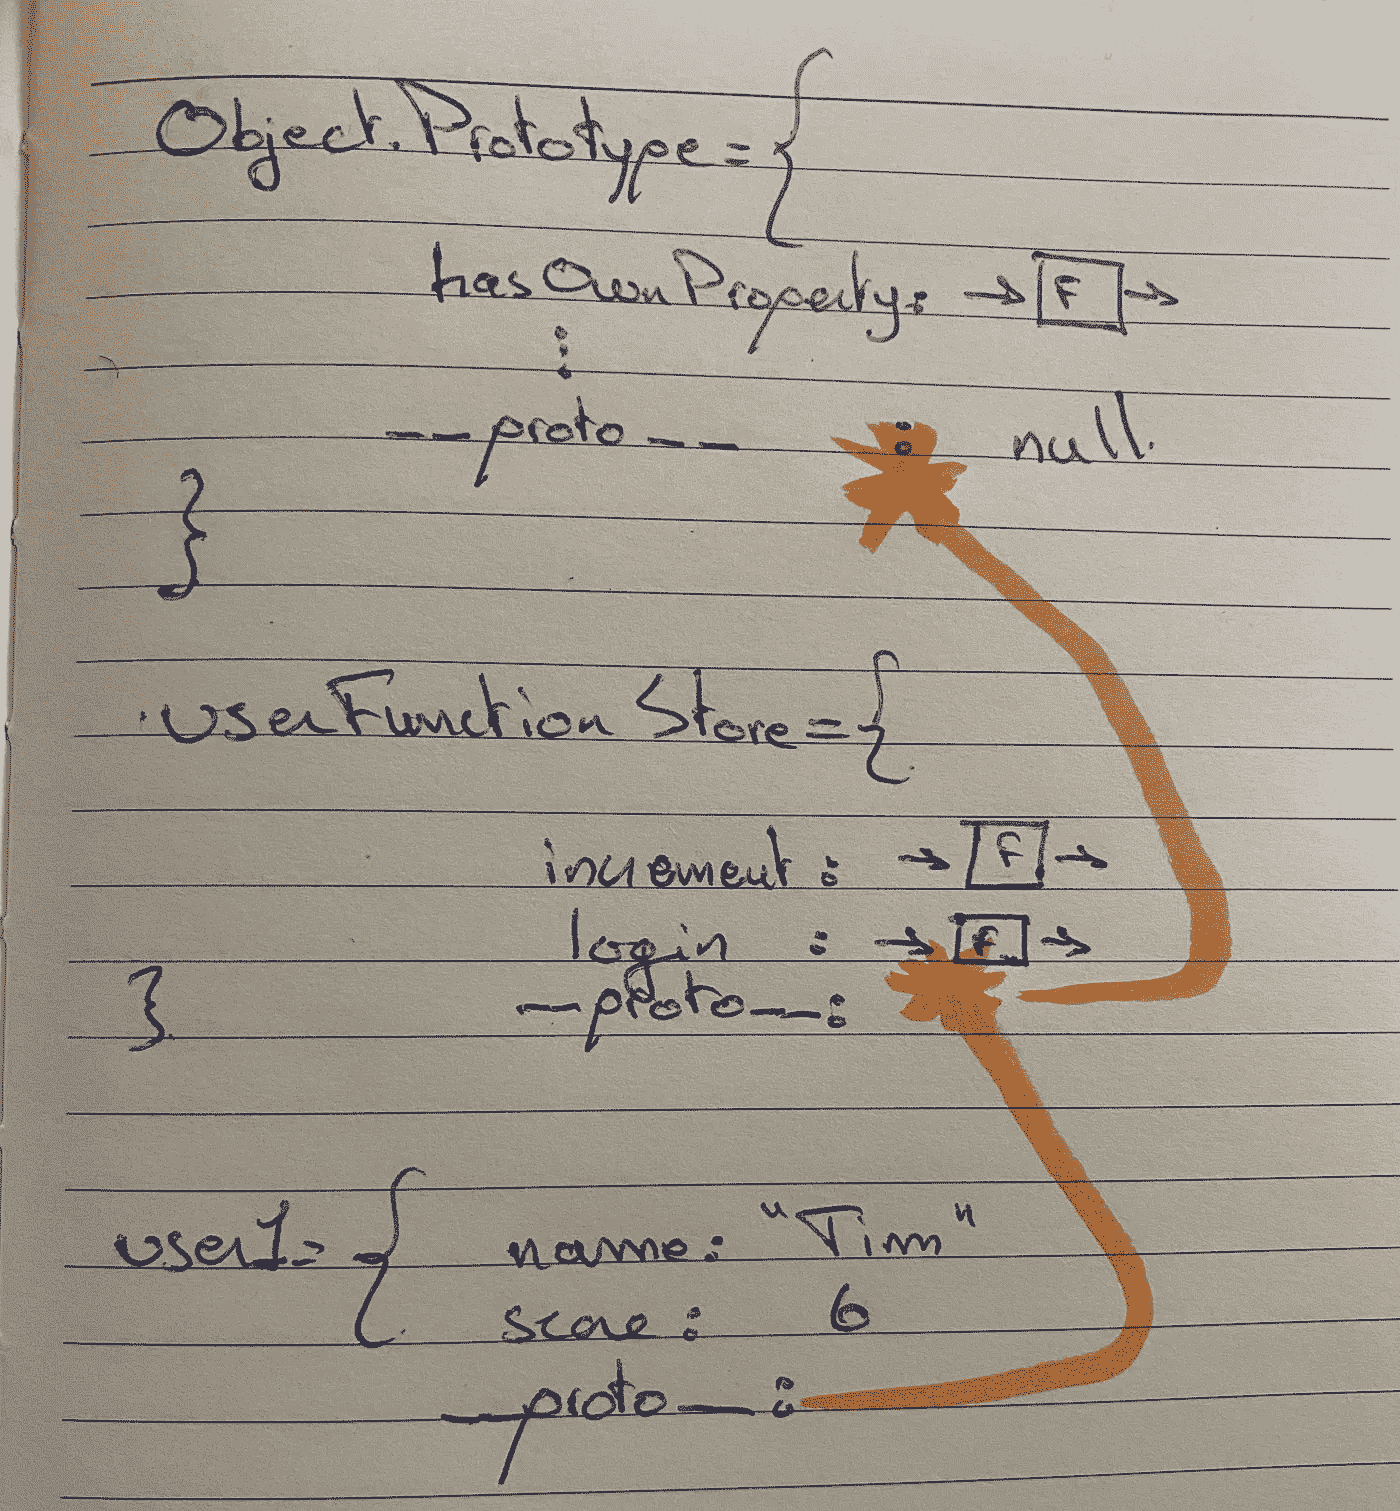 Object.Prototype = {
hasOwnProperty: → F →
:
__proto__ : null.
}
userFunction Store = {
increment : → F →
login : → F →
} __proto__ :
user1 = { name : "Tim"
score : 6
__proto__ :